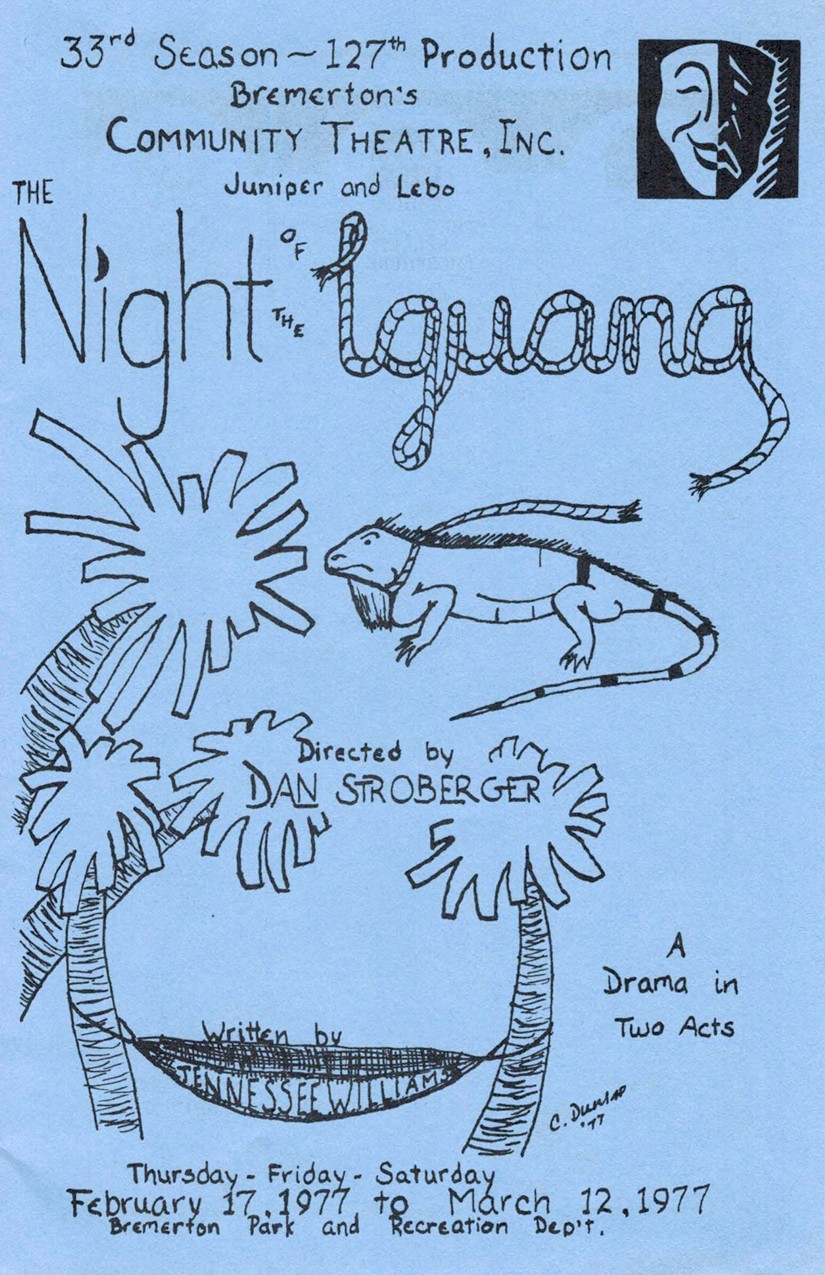 33rd Season ~ 127th Production
Bremerton's
Community Theatre, Inc.
Juniper and Lebo
THE
Night OF THE Iguana
Directed by
DAN STROBERGER
A
Drama in
Two Acts
Written by
TENNESSEE WILLIAMS
C. Dunlap
'77
Thursday - Friday - Saturday
February 17, 1977 to March 12, 1977
Bremerton Park and Recreation Dep't.